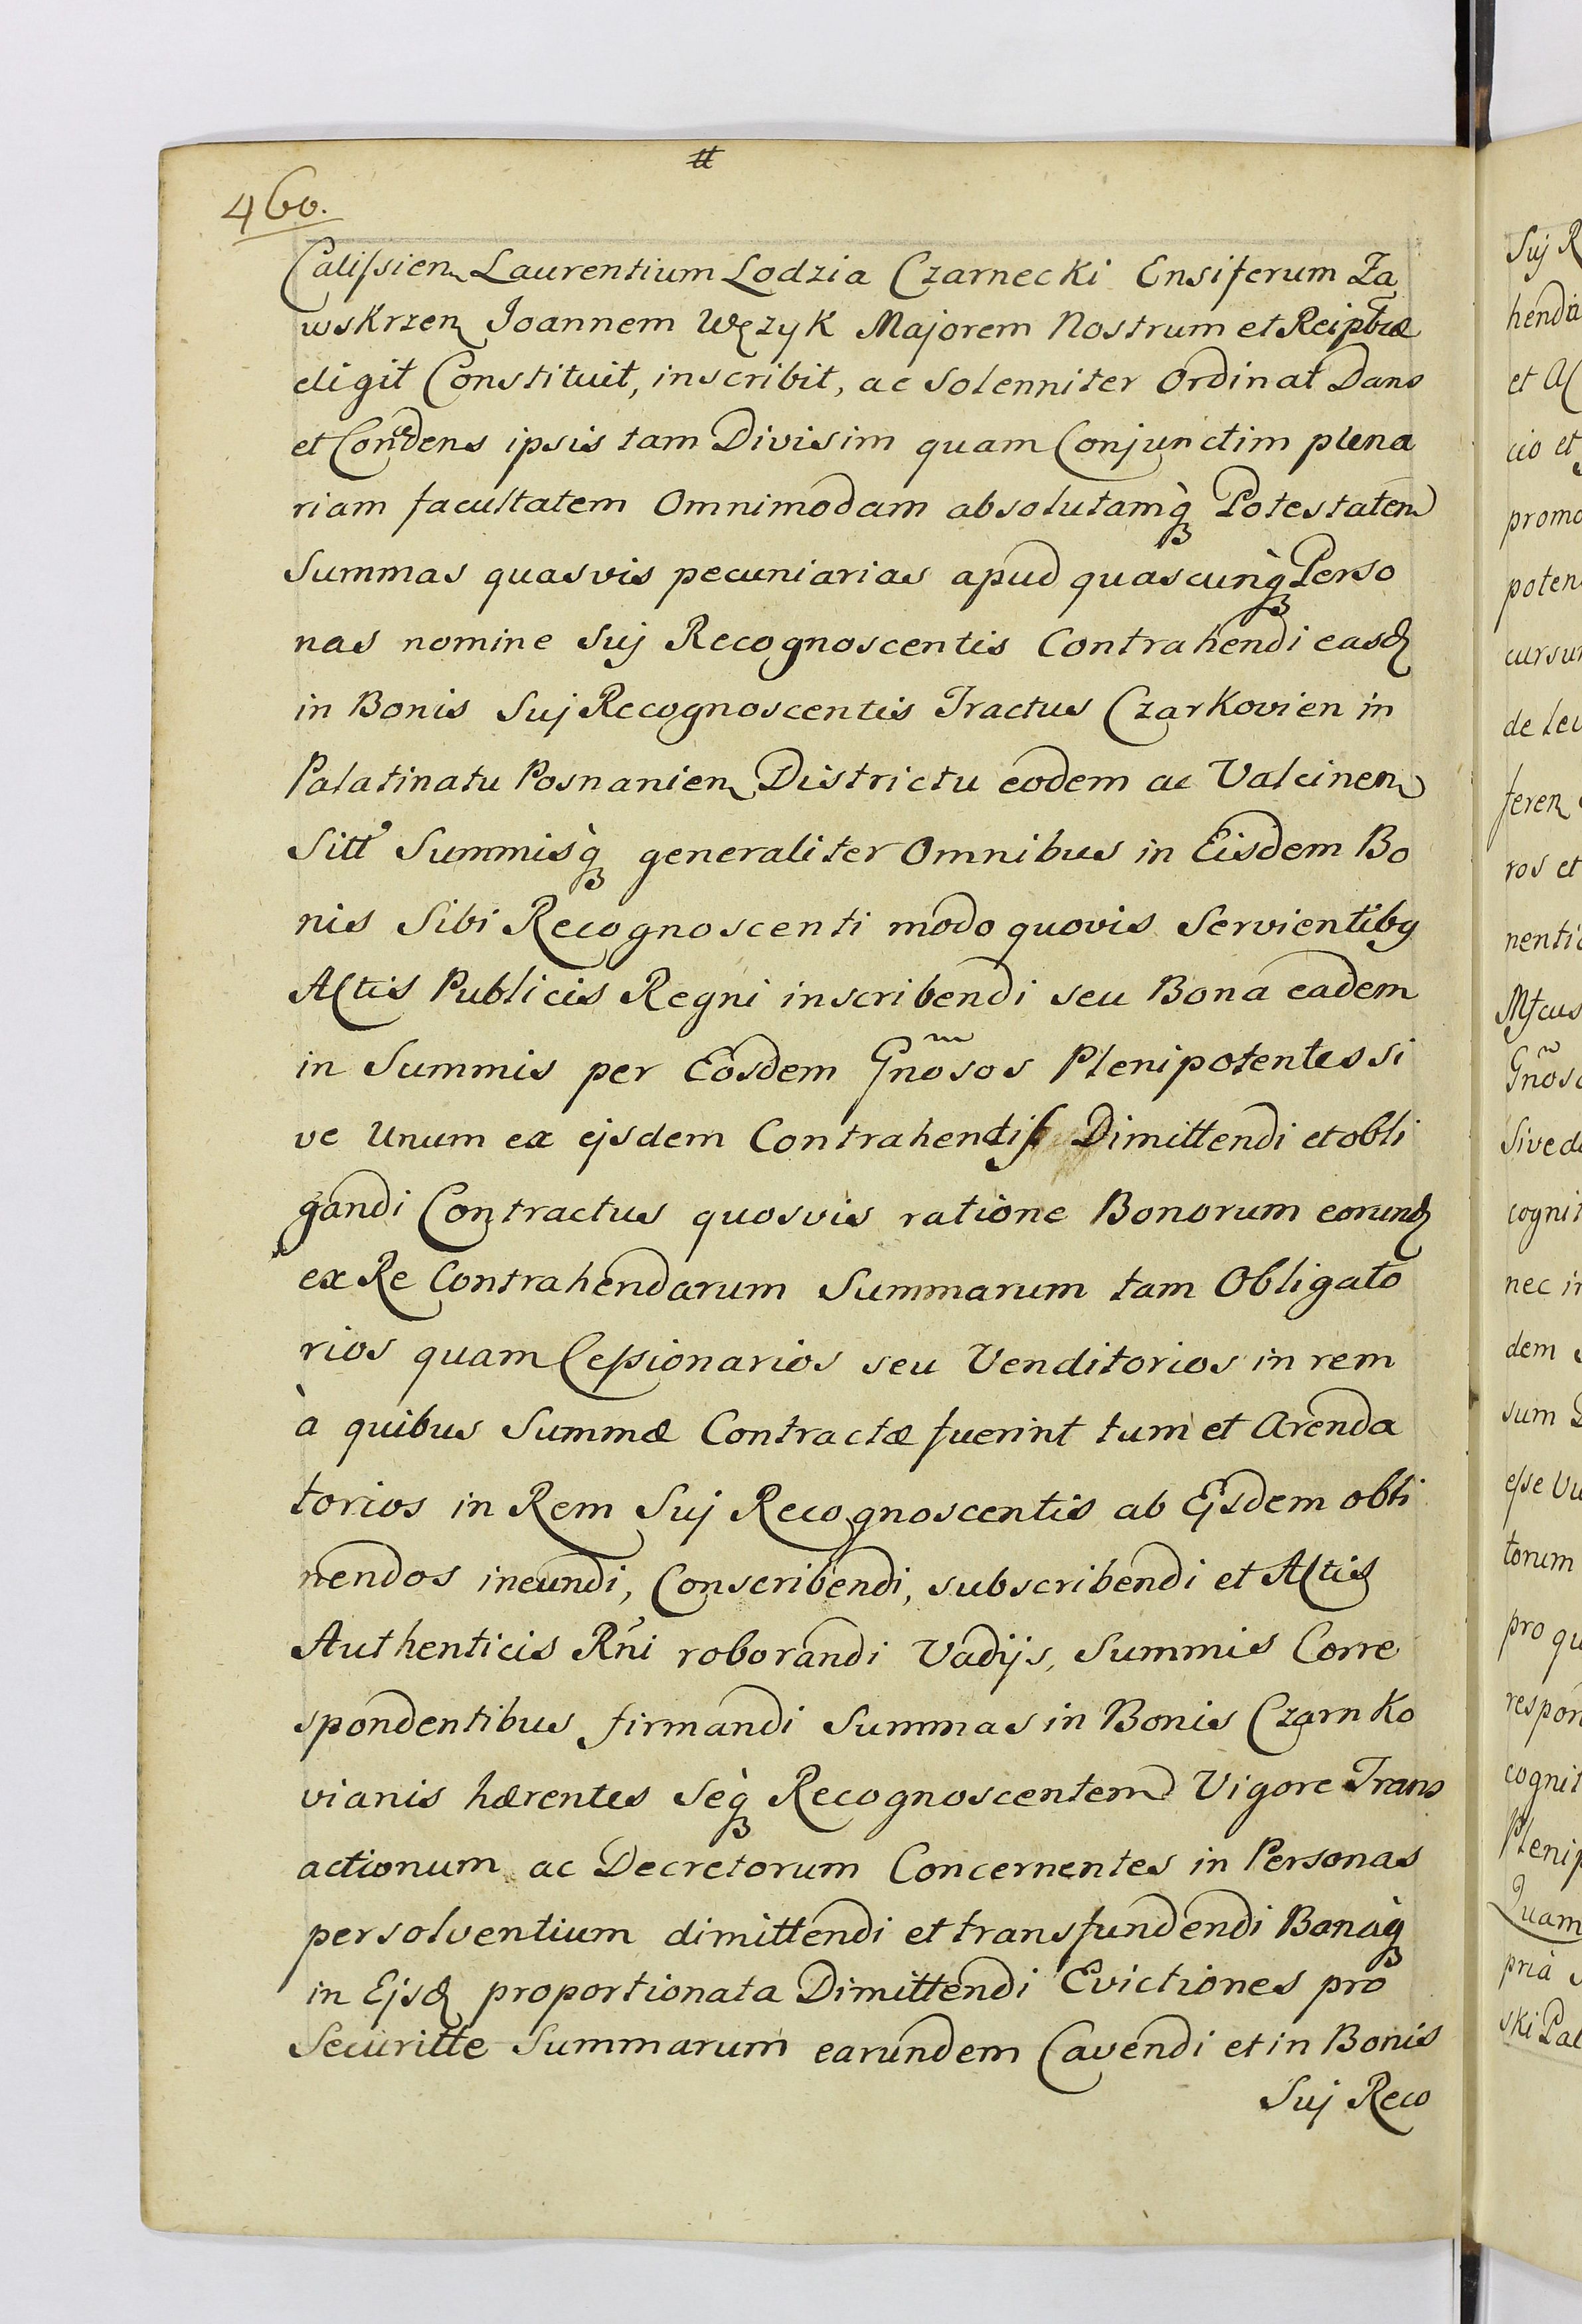 tt
460.
Calissien Laurentium Lodzia Czarnecki Ensiferum Za
wskrzen Joannem Węzyk Majorem Nostrum et Reiptcæ
eligit Constituit, inscribit, ac Solenniter Ordinat Dans
et Concdens ipsis tam Divisim quam Conjunctim plena
riam facultatem Omnimodam absolutamq̀ Potestatem
Summas quasvis pecuniarias apud quascunq̀ Perso
nas nomine Suj Recognoscentis Contrahendi easd
in Bonis Suj Recognoscentis Tractus Czarkovien in
Palatinatu Posnanien Districtu eodem ac Valcinen
Sitt Summisq̀ generaliter Omnibus in Eisdem Bo
nis Sibi Recognoscenti modo quovis Servientibg
Actis Publicis Regni inscribendi seu Bona eadem
in Summis per Eosdem Gnosos Plenipotentes si
ve Unum ex ejsdem Contrahendis Dimittendi et obli
gandi Contractus quosvis ratione Bonorum eorund
ex Re Contrahendarum Summarum tam Obligato
rios quam Cessionarios seu Venditorios in rem
à quibus Summæ Contractæ fuerint tum et Arenda
torios in Rem Suj Recognoscentis ab Ejsdem obti
nendos ineundi, Conscribendi, subscribendi et Actis
Authenticis Rni roborandi Vadijs, Summis Corre
spondentibus firmandi Summas in Bonis Czarnko
vianis hærentes Seq̀ Recognoscentem Vigore Trans
actionum ac Decretorum Concernentes in Personas
persolventium dimittendi et transfundendi Bonaq̀
in Ejsd proportionata Dimittendi Evictiones pro
Securitte Summarum earundem Cavendi et in Bonis
Suj Reco
Suj R
hendi
et Ac
cio et
promo
poten
cursu
de lev
feren
ros et
nenti
Mfcus
Gnos
Sive d
cognit
nec i
dem
sum
esse Vu
torum
pro qu
respon
cognit
Plenip
Quam
prià
ski Pal